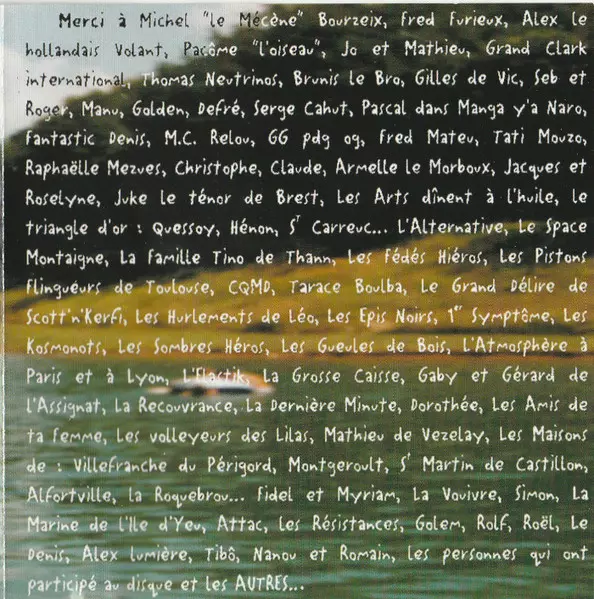 Merci à Michel "le Mécène" Bourzeix, Fred Furieux, Alex le
hollandais Volant, Pacôme "l'oiseau", Jo et Mathieu, Grand Clark
international, Thomas Neutrinos, Brunis le Bro, Gilles de Vic, Seb et
Roger, Manu, Golden, Defré, Serge Cahut, Pascal dans Manga y'a Naro,
Fantastic Denis, M.C. Relou, GG pdg og, Fred Mateu, Tati Mouzo,
Raphaëlle Mezues, Christophe, Claude, Armelle le Morboux, Jacques et
Roselyne, Juke le ténor de Brest, Les Arts dînent à l'huile, le
triangle d'or : Quessoy, Hénon, St Carreuc... L'Alternative, Le Space
Montaigne, La Famille Tino de Thann, Les Fédés Hiéros, Les Pistons
Flingueurs de Toulouse, CQMD, Tarace Boulba, Le Grand Délire de
Scott'n'Kerfi, Les Hurlements de Léo, Les Epis Noirs, 1er Symptôme, Les
Kosmonots, Les Sombres Héros, Les Gueules de Bois, L'Atmosphère à
Paris et à Lyon, L'Elastik, La Grosse Caisse, Gaby et Gérard de
l'Assignat, La Recouvrance, La Dernière Minute, Dorothée, Les Amis de
ta Femme, Les volleyeurs des Lilas, Mathieu de Vezelay, Les Maisons
de : Villefranche du Périgord, Montgeroult, St Martin de Castillon,
Alfortville, la Roquebrou... Fidel et Myriam, La Vouivre, Simon, La
Marine de l'Ile d'Yeu, Attac, Les Résistances, Golem, Rolf, Roël, Le
Denis, Alex Lumière, Tibô, Nanou et Romain, Les personnes qui ont
participé au disque et les AUTRES...